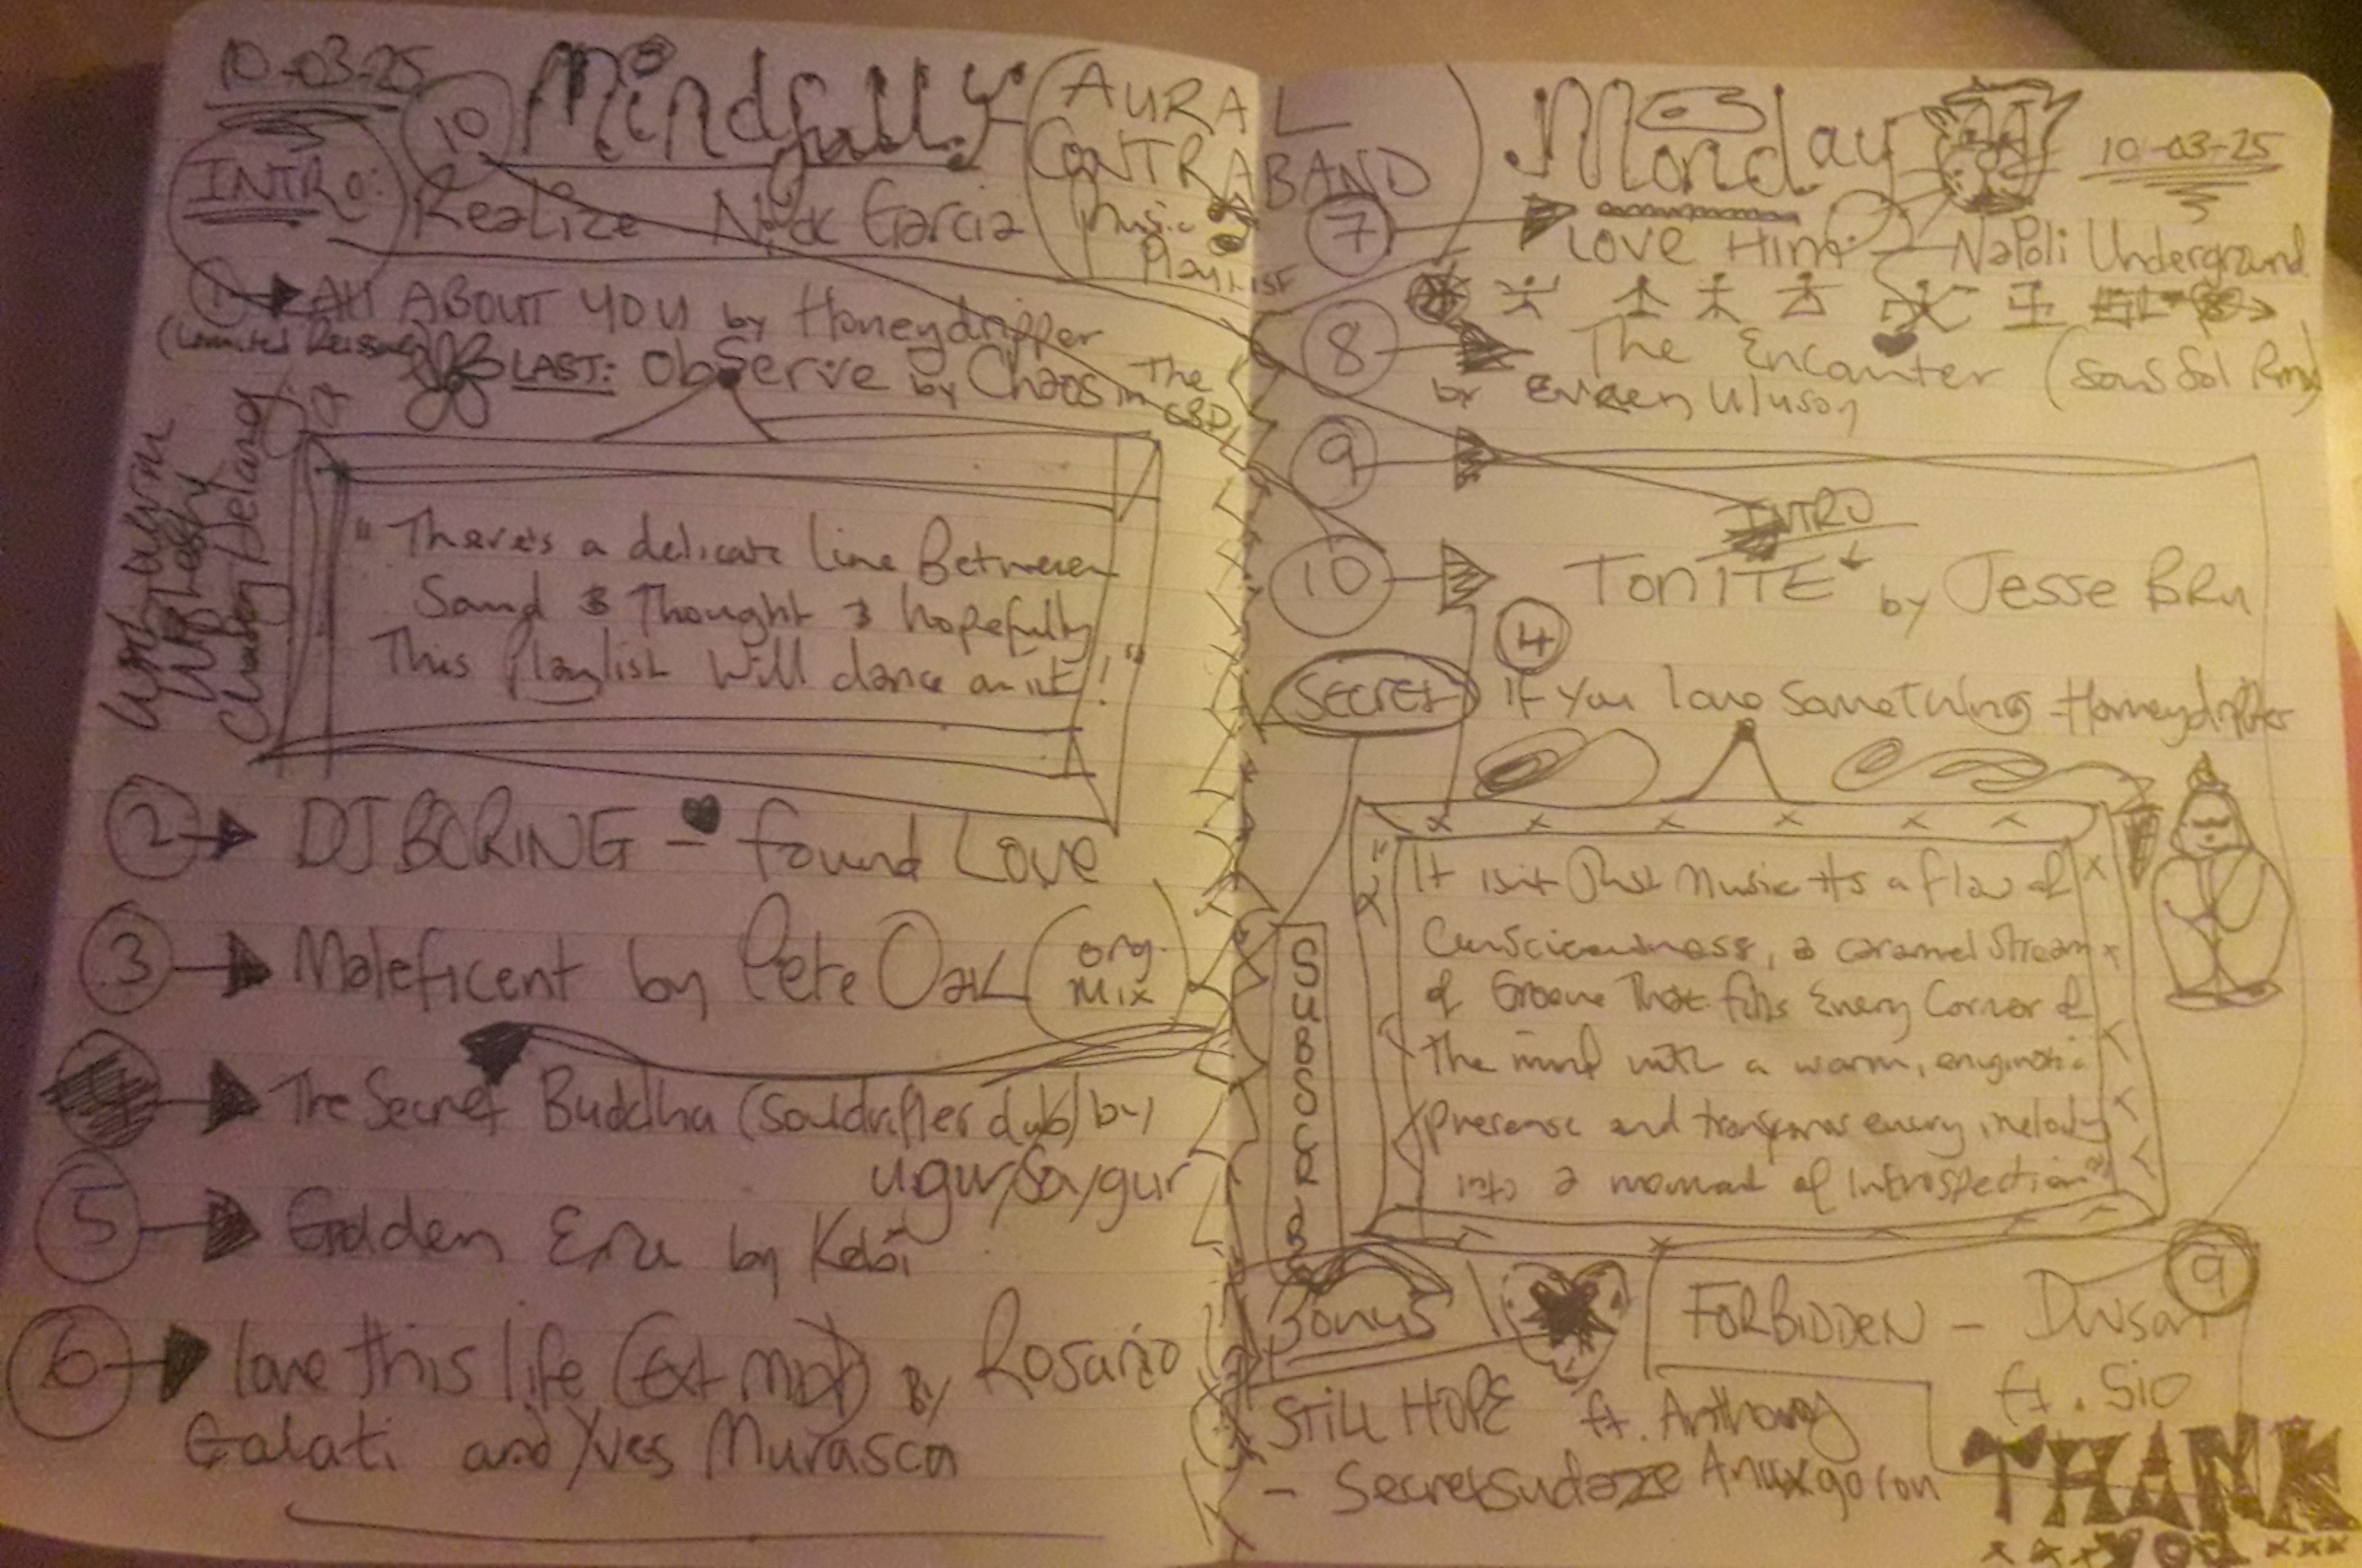 10-03-25
10
Mindfully
AURAL
CONTRABAND
Music
Playlist
INTRO:
Realize Nick Garcia
1 All ABOUT YOU by Honeydripper
(Limited Reissue)
LAST: Observe by Chaos in The CBD
"There's a delicate line Between
Sound & Thought & hopefully
This Playlist will dance on it!"
2 DJ BORING - found Love
3 Maleficent by Pete Oak (org. mix)
The Secret Buddha (Souldrifter dub) by
ugur/saygur
5 Golden Era by Kebi
6 love this life (Ext Mix) By Rosario
Galati and Yves Murasca
Monday
10-03-25
7 LOVE Him - Napoli Underground
8 The Encounter (Sous Sol Rmx)
by Evren Ulusoy
9
INTRO
10 TONITE by Jesse BRu
4
Secret If You love Something - Honeydripper
SUBSCRIBE
"It isn't Just Music its a flow of
Consciousness, a caramel Stream
of Groove That fills Every Corner of
The mind with a warm, enigmatic
presence and transforms every melody
into a moment of Introspection"
Bonus
FORBIDDEN - Dwson
ft. Sio
9
STILL HOPE ft. Anthony
- Secretsundaze
THANK